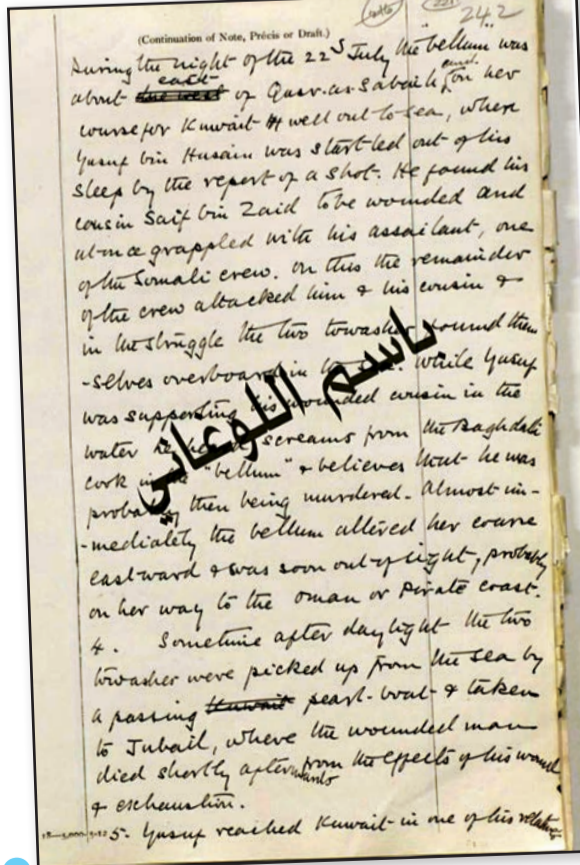 note
(221)
242
(Continuation of Note, Précis or Draft.)
During the night of the 22d July the "bellum" was
about the west east of Qasr-as-Sabaih, and on her
course for Kuwait & well out to sea, where
Yusuf bin Husain was startled out of his
sleep by the report of a shot. He found his
cousin Saif bin Zaid to be wounded and
at once grappled with his assailant, one
of the Somali crew. On this the remainder
of the crew attacked him & his cousin &
in the struggle the two towashes found them
-selves overboard in the sea. While Yusuf
was supporting his wounded cousin in the
water he heard screams from the Baghdadi
cook in the "bellum" & believes that he was
probably then being murdered. Almost im-
-mediately the bellum altered her course
eastward & was soon out of sight, probably
on her way to the Oman or Pirate coast.
4. Sometime after daylight the two
towasher were picked up from the sea by
a passing Kuwait pearl-boat & taken
to Jubail, where the wounded man
died shortly afterwards from the effects of his wound
& exhaustion.
5. Yusuf reached Kuwait in one of his relatives
باسم اللوغاني